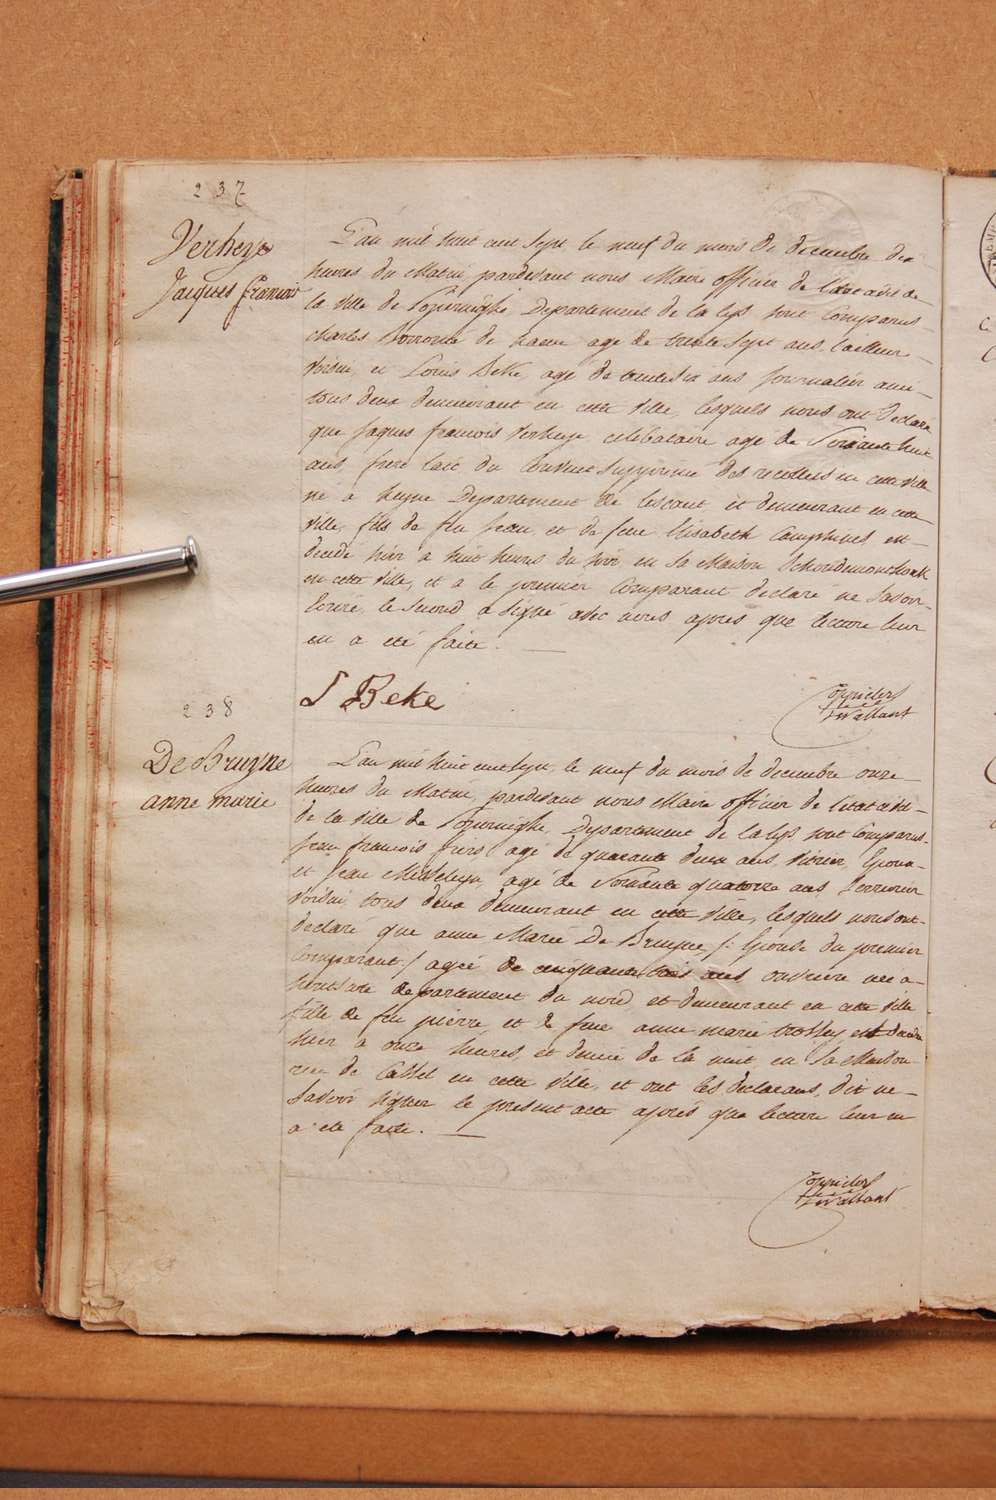 237
Verheye
Jacques francois
L'an mil huit cent sept le neuf du mois de decembre dix
heures du Matin pardevant nous Maire officier de l'etat civil de
la ville de Poperinghe Departement de la lys sont comparus
charles Borromé de haene agé de trente sept ans, tailleur
voisin, et Louis Beke, agé de ans journalier aussi
tous deux demeurant en cette ville, lesquels nous ont declaré
que Jaques francois Verheye celibataire agé de Soixante huit
ans, frere laic du Couvent Supprimé des recollets en cette ville
né a heyne Departement de lescaut, et demeurant en cette
ville, fils de feu jean, et de feue Elisabeth est
decedé hier a huit heures du soir, en sa Maison
en cette ville, et a le premier Comparant declaré ne savoir
Ecrire, le second a signé avec nous après que lecture leur
en a eté faite.
L Beke
238
De Bruyne
anne marie
L'an mil huit cent sept, le neuf du mois de decembre onze
heures du Matin, pardevant nous Maire officier de l'etat civil
de la ville de Poperinghe, Departement de la lys sont Comparus
jean francois agé de quarante deux ans, vitrier, Epoux
et jean agé de Soixante quatorze ans Serrurier
voisin, tous deux demeurant en cette ville, lesquels nous ont
declaré que anne Marie De Bruyne /: Epouse du premier
Comparant :/ agée de cinquante trois ans née a
departement du nord, et demeurant en cette ville
fille de feu pierre, et de feue anne marie est decedée
hier a onze heures et demie de la nuit en sa Maison
rue de Cassel en cette ville, et ont les declarans, dit ne
savoir signer le present acte après que lecture leur en
a eté faite.